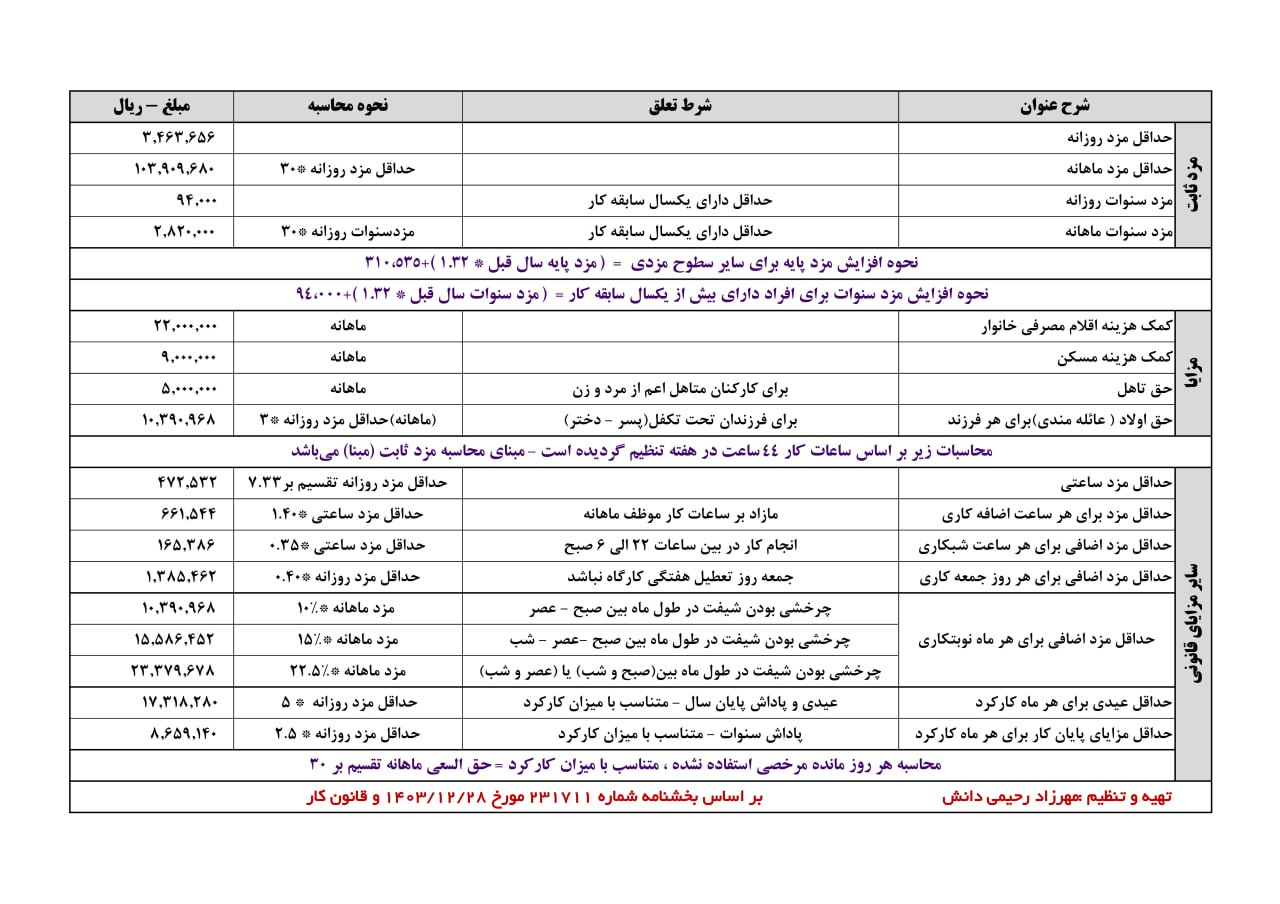 شرح عنوان	شرط تعلق	نحوه محاسبه	مبلغ – ریال
مزد ثابت
حداقل مزد روزانه	۳,۴۶۳,۶۵۶
حداقل مزد ماهانه	حداقل مزد روزانه *۳۰	۱۰۳,۹۰۹,۶۸۰
مزد سنوات روزانه	حداقل دارای یکسال سابقه کار	۹۴,۰۰۰
مزد سنوات ماهانه	حداقل دارای یکسال سابقه کار	مزدسنوات روزانه *۳۰	۲,۸۲۰,۰۰۰
نحوه افزایش مزد پایه برای سایر سطوح مزدی = ( مزد پایه سال قبل * ۱.۳۲ )+۳۱۰،۵۳۵
نحوه افزایش مزد سنوات برای افراد دارای بیش از یکسال سابقه کار = ( مزد سنوات سال قبل * ۱.۳۲ )+۹٤،۰۰۰
مزایا
کمک هزینه اقلام مصرفی خانوار	ماهانه	۲۲,۰۰۰,۰۰۰
کمک هزینه مسکن	ماهانه	۹,۰۰۰,۰۰۰
حق تاهل	برای کارکنان متاهل اعم از مرد و زن	ماهانه	۵,۰۰۰,۰۰۰
حق اولاد ( عائله مندی)برای هر فرزند	برای فرزندان تحت تکفل(پسر - دختر)	(ماهانه)حداقل مزد روزانه *۳	۱۰,۳۹۰,۹۶۸
محاسبات زیر بر اساس ساعات کار ٤٤ ساعت در هفته تنظیم گردیده است - مبنای محاسبه مزد ثابت (مبنا) می‌باشد
سایر مزایای قانونی
حداقل مزد ساعتی	حداقل مزد روزانه تقسیم بر۷.۳۳	۴۷۲,۵۳۲
حداقل مزد برای هر ساعت اضافه کاری	مازاد بر ساعات کار موظف ماهانه	حداقل مزد ساعتی *۱.۴۰	۶۶۱,۵۴۴
حداقل مزد اضافی برای هر ساعت شبکاری	انجام کار در بین ساعات ۲۲ الی ۶ صبح	حداقل مزد ساعتی *۰.۳۵	۱۶۵,۳۸۶
حداقل مزد اضافی برای هر روز جمعه کاری	جمعه روز تعطیل هفتگی کارگاه نباشد	حداقل مزد روزانه *۰.۴۰	۱,۳۸۵,۴۶۲
حداقل مزد اضافی برای هر ماه نوبتکاری
چرخشی بودن شیفت در طول ماه بین صبح - عصر	مزد ماهانه *۱۰٪	۱۰,۳۹۰,۹۶۸
چرخشی بودن شیفت در طول ماه بین صبح -عصر - شب	مزد ماهانه *۱۵٪	۱۵,۵۸۶,۴۵۲
چرخشی بودن شیفت در طول ماه بین(صبح و شب) یا (عصر و شب)	مزد ماهانه *۲۲.۵٪	۲۳,۳۷۹,۶۷۸
حداقل عیدی برای هر ماه کارکرد	عیدی و پاداش پایان سال - متناسب با میزان کارکرد	حداقل مزد روزانه * ۵	۱۷,۳۱۸,۲۸۰
حداقل مزایای پایان کار برای هر ماه کارکرد	پاداش سنوات - متناسب با میزان کارکرد	حداقل مزد روزانه * ۲.۵	۸,۶۵۹,۱۴۰
محاسبه هر روز مانده مرخصی استفاده نشده ، متناسب با میزان کارکرد = حق السعی ماهانه تقسیم بر ۳۰
تهیه و تنظیم :مهرزاد رحیمی دانش	بر اساس بخشنامه شماره ۲۳۱۷۱۱ مورخ ۱۴۰۳/۱۲/۲۸ و قانون کار